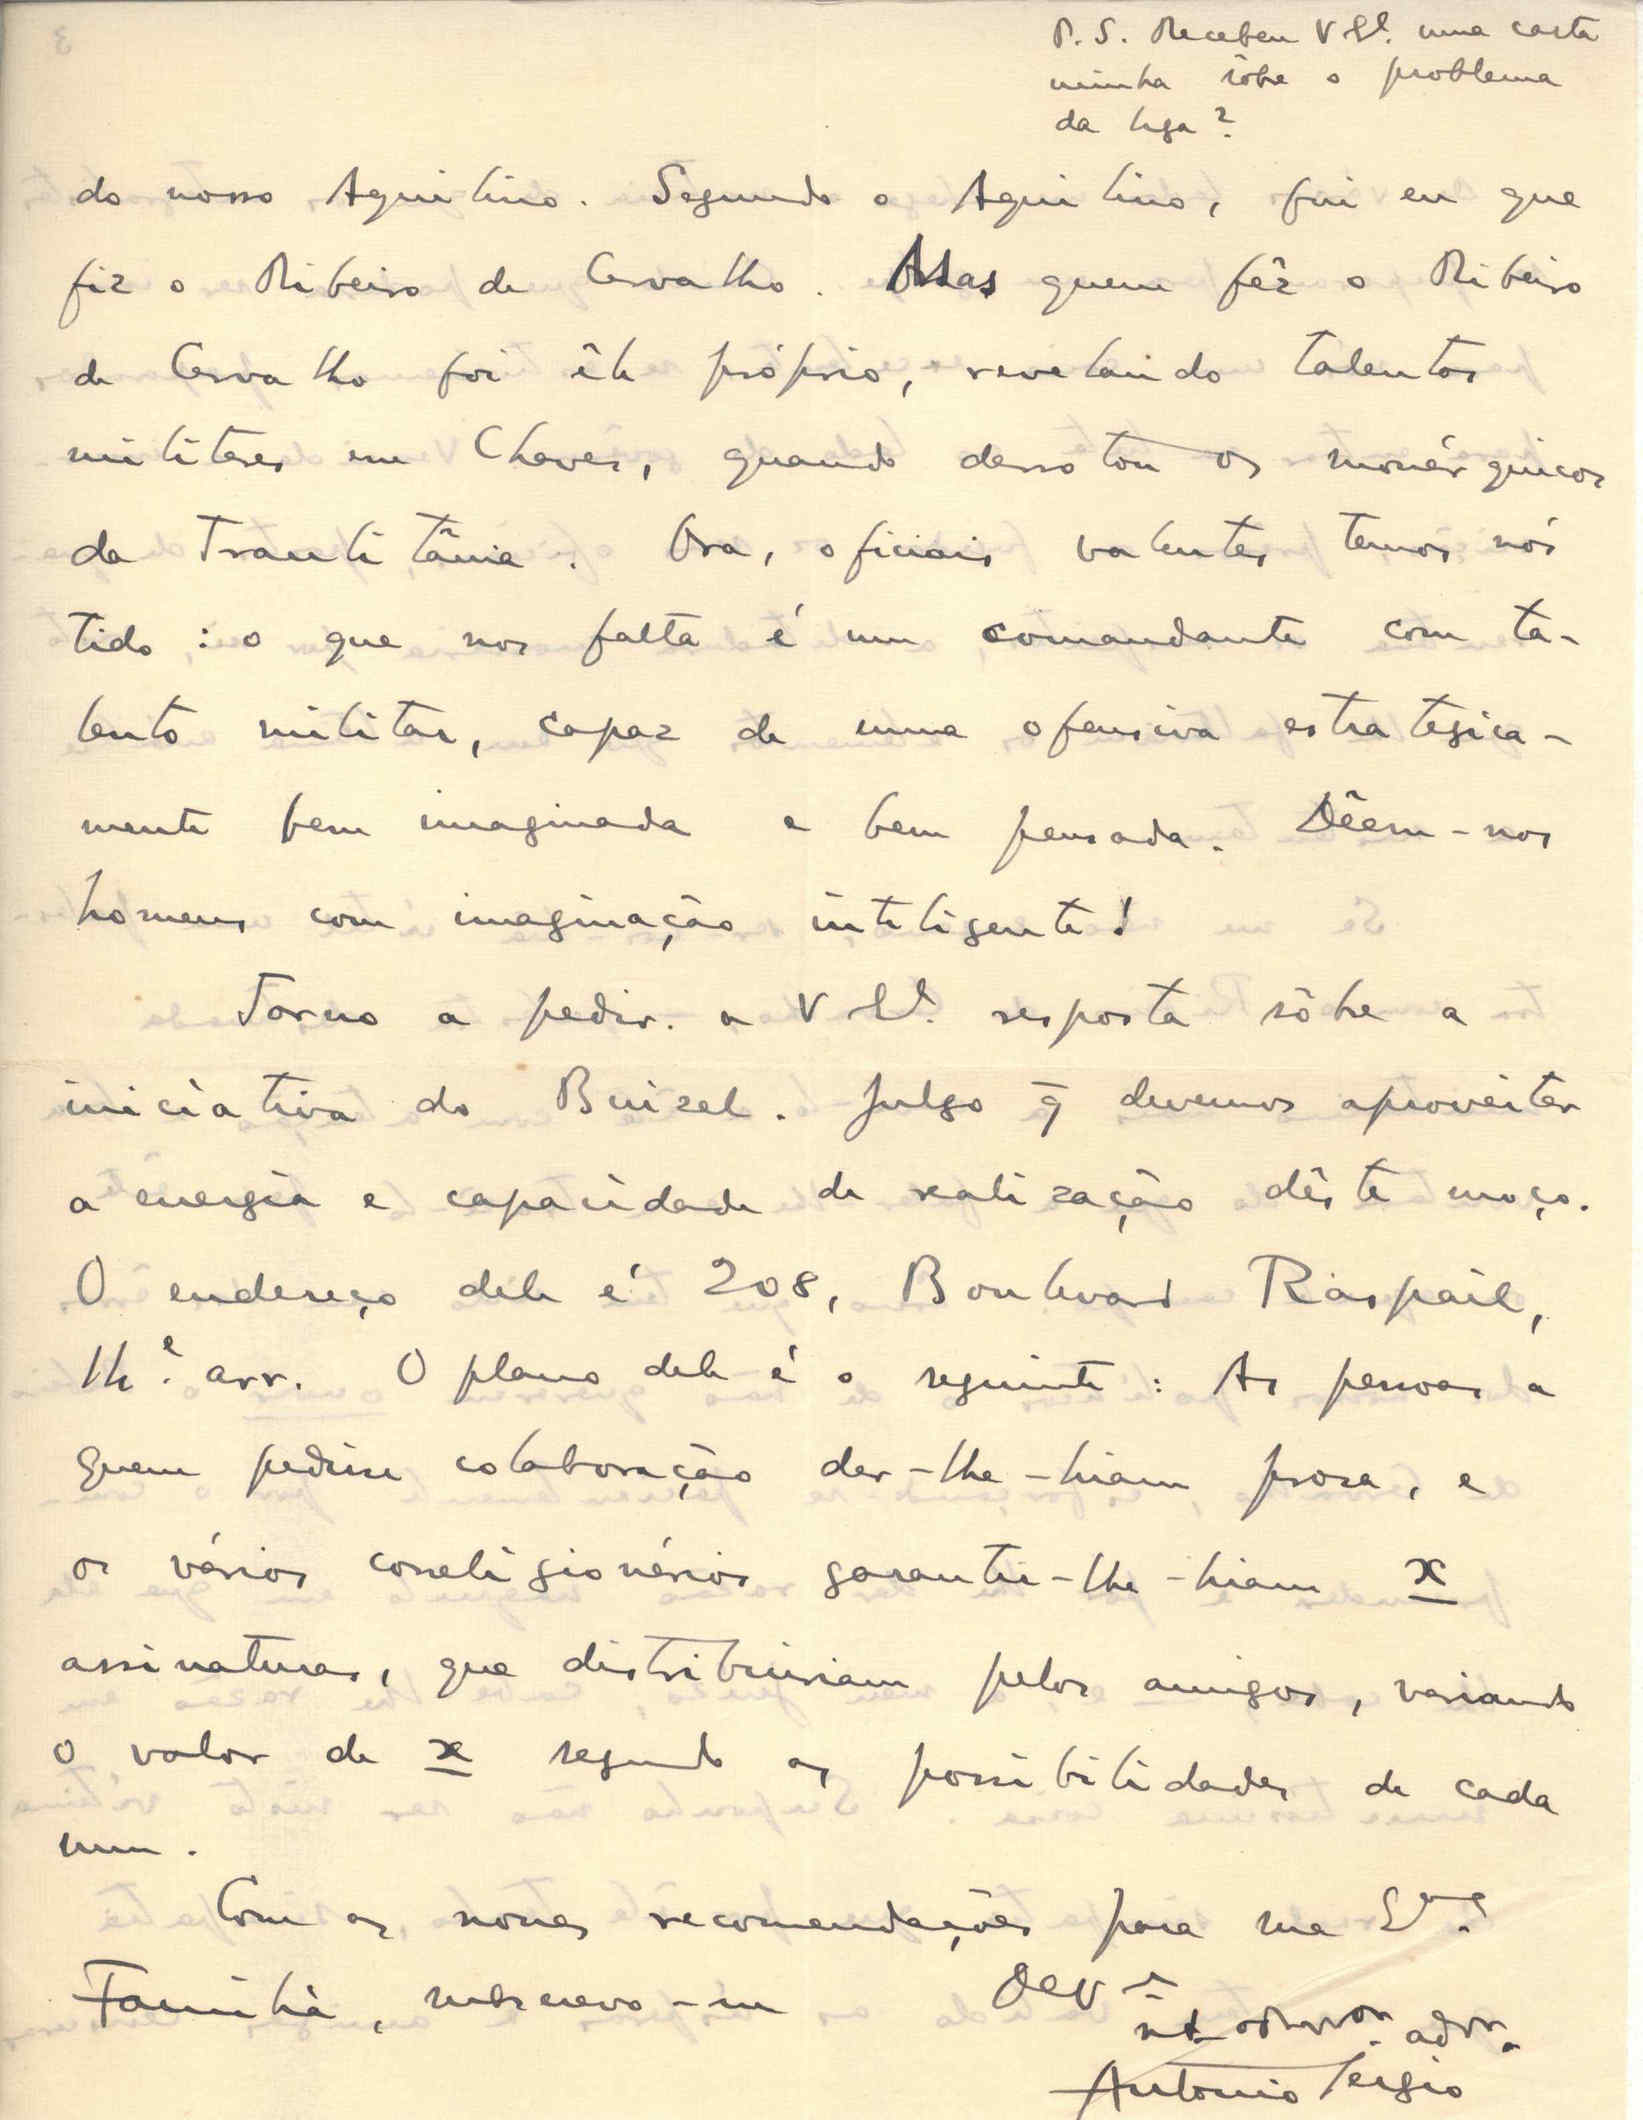 P. S. Recebeu V. Ex.ª uma carta
minha sôbre o problema
da liga?
do nosso Aquilino. Segundo o Aquilino, fui eu que
fiz o Ribeiro de Carvalho. Mas quem fêz o Ribeiro
de Carvalho foi êle próprio, revelando talentos
militares em Chaves, quando derrotou os monárquicos
da Traulitânia. Ora, oficiais valentes temos nós
tido: o que nos falta é um comandante com ta-
lento militar, capaz de uma ofensiva estratègica-
mente bem imaginada e bem pensada. Dêem-nos
homens com imaginação inteligente!
Torno a pedir a V. Ex.ª resposta sôbre a
iniciativa do Buisel. Julgo q̃ devemos aproveitar
a energia e capacidade de realização dêste moço.
O endereço dele é 208, Boulevard Raspail,
14.e arr. O plano dele é o seguinte: As pessoas a
quem pedisse colaboração dar-lhe-hiam prosa, e
os vários correligionários garantir-lhe-hiam x
assinaturas, que distribuiriam pelos amigos, variando
o valor de x segundo as possibilidades de cada
um.
Com as nossas recomendações para sua Ex.ma
Família, subscrevo-me
adm.or
António Sérgio